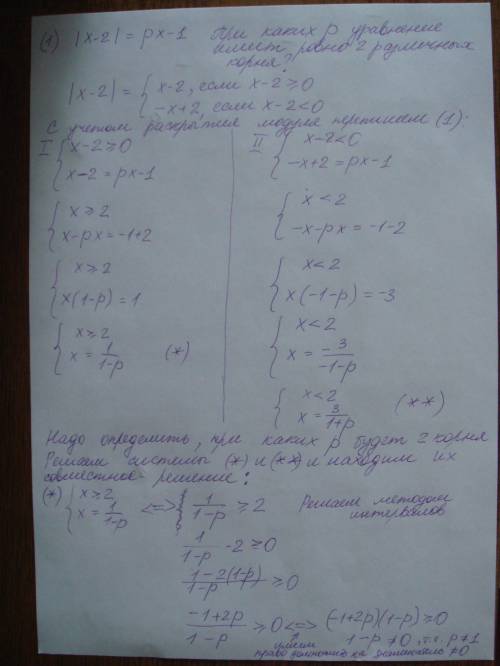 (1) |x-2| = px-1 При каких p уравнение
имеет ровно 2 различных
корня?
|x-2| = { x-2, если x-2≥0
-x+2, если x-2<0
С учетом раскрытия модуля перепишем (1):
I { x-2≥0
x-2=px-1
{ x≥2
x-px=-1+2
{ x≥2
x(1-p)=1
{ x≥2
x=1/(1-p) (*)
II { x-2<0
-x+2=px-1
{ x<2
-x-px=-1-2
{ x<2
x(-1-p)=-3
{ x<2
x=-3/(-1-p)
{ x<2
x=3/(1+p) (**)
Надо определить, при каких p будет 2 корня
Решаем системы (*) и (**) и находим их
совместное решение:
(*) { x≥2
x=1/(1-p) <=> { 1/(1-p) ≥ 2 Решаем методом
интервалов
1/(1-p) - 2 ≥ 0
(1-2(1-p))/(1-p) ≥ 0
(-1+2p)/(1-p) ≥ 0 <=> (-1+2p)(1-p) ≥ 0
1-p≠0, т.е. p≠1
умеем
право домножить на знаменатель ≠0